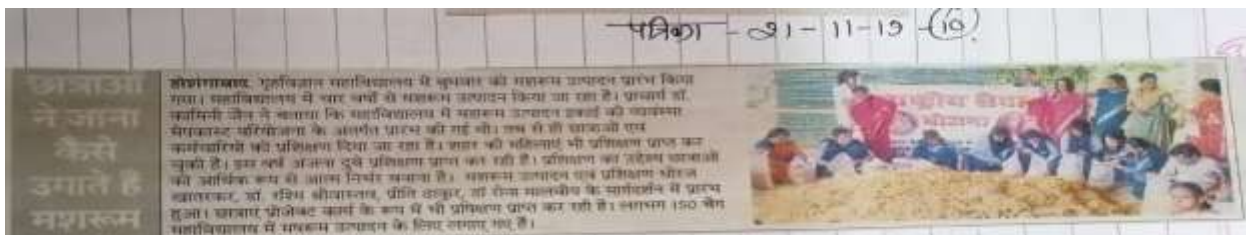 पत्रिका - 21-11-19 -
छात्राओं
ने जाना
कैसे
उगाते हैं
मशरूम
होशंगाबाद. गृहविज्ञान महाविद्यालय में बुधवार को मशरूम उत्पादन प्रारंभ किया
गया। महाविद्यालय में चार वर्षों से मशरूम उत्पादन किया जा रहा है। प्राचार्य डॉ.
कामिनी जैन ने बताया कि महाविद्यालय में मशरूम उत्पादन इकाई की स्थापना
मेपकास्ट परियोजना के अंतर्गत प्रारंभ की गई थी। तब से ही छात्राओं एवं
कर्मचारियों को प्रशिक्षण दिया जा रहा है। शहर की महिलाएं भी प्रशिक्षण प्राप्त कर
चुकी है। इस वर्ष अंजना दुबे प्रशिक्षण प्राप्त कर रही है। प्रशिक्षण का उद्देश्य छात्राओं
को आर्थिक रूप से आत्म निर्भर बनाना है। मशरूम उत्पादन एवं प्रशिक्षण धीरज
खातरकर, डॉ. रश्मि श्रीवास्तव, प्रीति ठाकुर, डॉ रीना मालवीय के मार्गदर्शन में प्रारंभ
हुआ। छात्राएं प्रोजेक्ट कार्य के रूप में भी प्रशिक्षण प्राप्त कर रही है। लगभग 150 बैग
महाविद्यालय में मशरूम उत्पादन के लिए लगाए गए हैं।
राष्ट्रीय सेवा
योजना